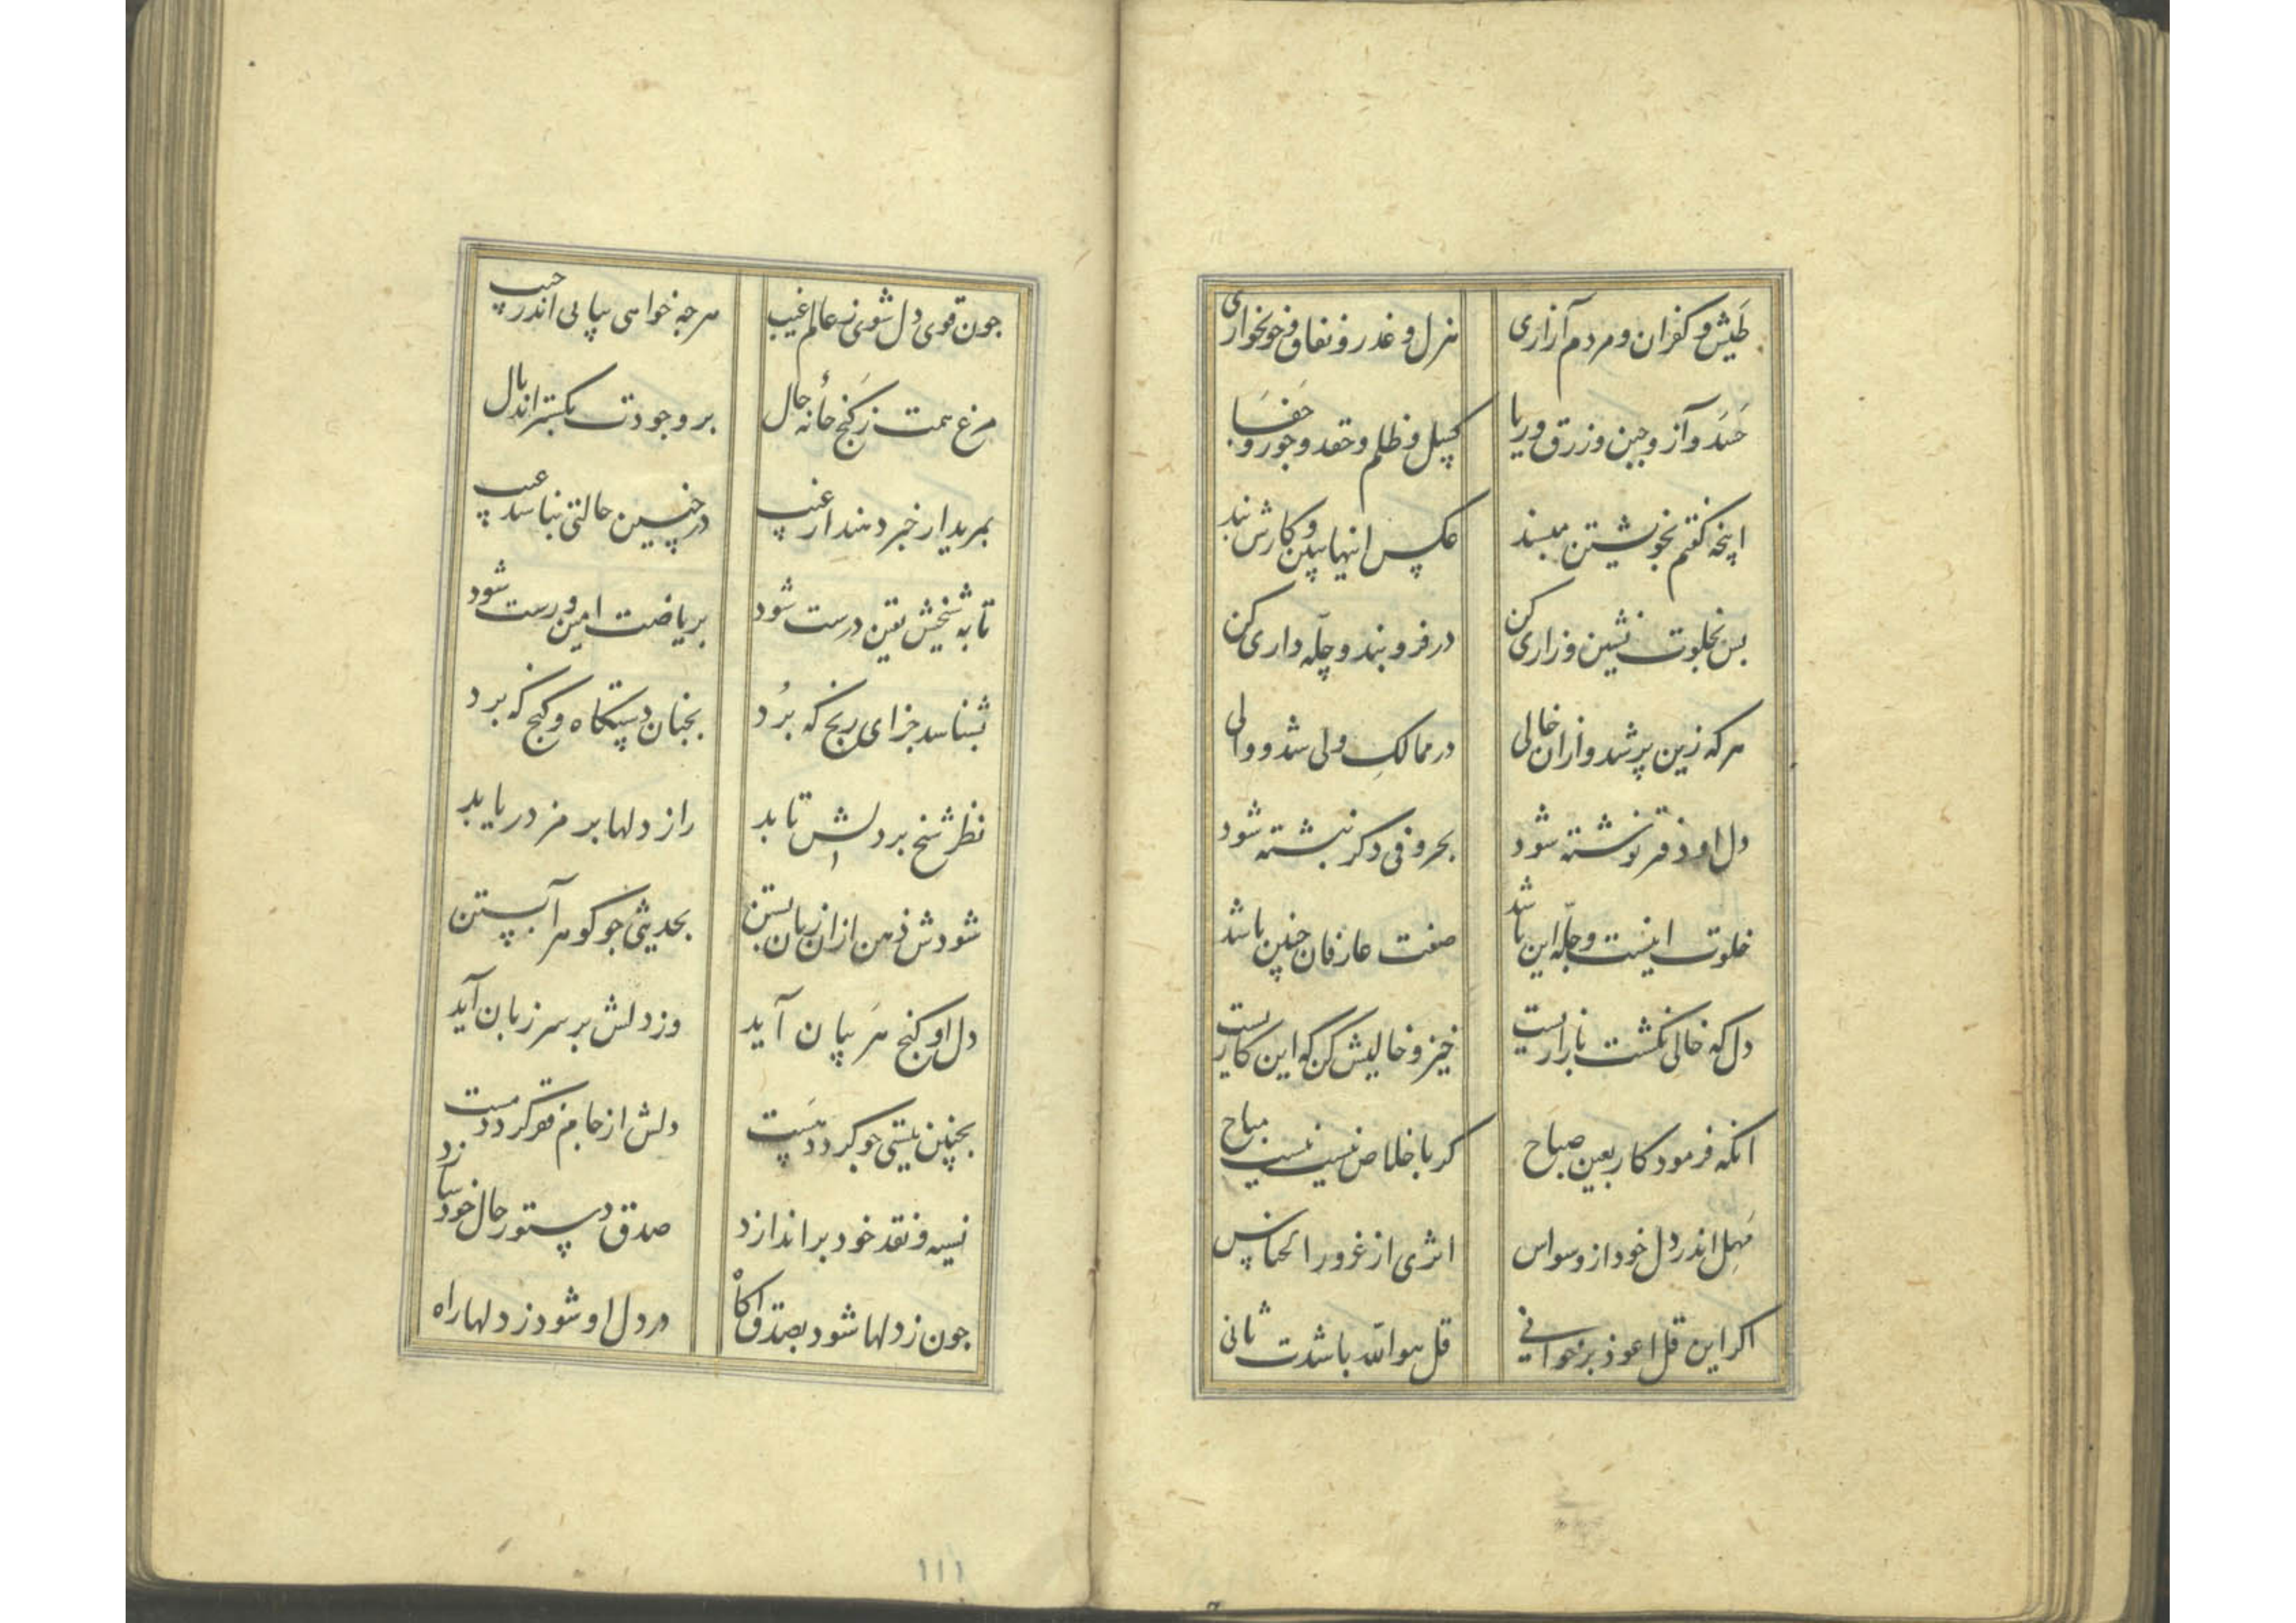 طَیش و کفران و مردم آزاری هزل و غدر و نفاق و خونخواری
حَسَد و آز و جبن و زرق و ریا کسل و ظلم و حقد و جور و جَفَا
اینچه گفتم بخویشتن مپسند عکس اینها ببین و کارش بند
بس بخلوت نشین و زاری کن در فرو بند و چلّه داری کن
هرکه زین پر شد و ازان خالی در ممالکِ ولی شد و والی
دل او دفتر نوشته شود بحروفی دکر نبشته شود
خلوت اینست و چلّه این باشد صفت عارفان چنین باشد
دل که خالی نکشت بازاریست خیز و خالیش کن که این کاریست
انکه فرمود کاربعین صباح کر باخلاص نیست نیست مباح
مَهِل اندر دل خود از وسواس اثری از غرور الخناس
اکر این قل اعوذ برخوانی قل هوالله باشدت ثانی
جون قوی دل شوی ز عالم غیب هرجه خواهی بیابی اندر جیب
مرغ همت ز کَنج خانهٔ حال بر وجودت بکستراند بال
بمریدار خبر دهند از غیب در چنین حالتی نباشد عیب
تا به شیخش یقین درست شود بریاضت امین و رست شود
بشناسد جزای رنج که بُرد بجنان دستکاه و کنج که برد
نظر شیخ بر دلش تابد راز دلها برمز دریابد
شودش ذهن ازان زبان بستن بحدیثی جو کوهر آبستن
دل او کنج هَر بیان آید وز دلش بر سر زبان آید
بجنین نیستی جو کردد هَست دلش از جام فقر کردد مست
نسیه و نقد خود براندازد صدق دستور حال خود سازد
جون ز دلها شود بصدق آکاه در دل او شود ز دلها راه
۱۱۱